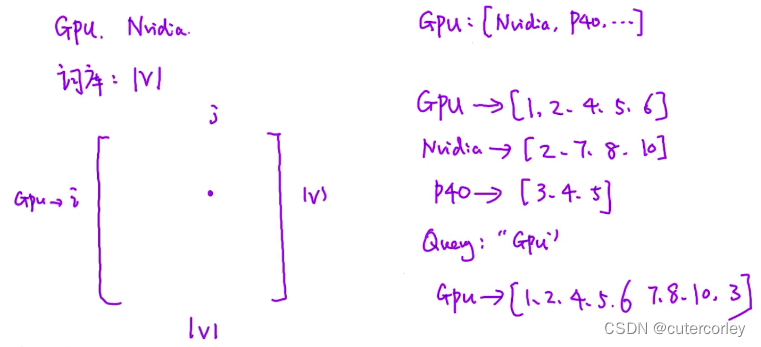 Gpu. Nvidia.
词库: |V|
j
Gpu → i
|V|
|V|
Gpu: [Nvidia, P40, ...]
Gpu → [1, 2. 4. 5. 6]
Nvidia → [2. 7. 8. 10]
P40 → [3. 4. 5]
Query: "Gpu"
Gpu → [1. 2. 4. 5. 6 7. 8. 10. 3]
CSDN @cutercorley